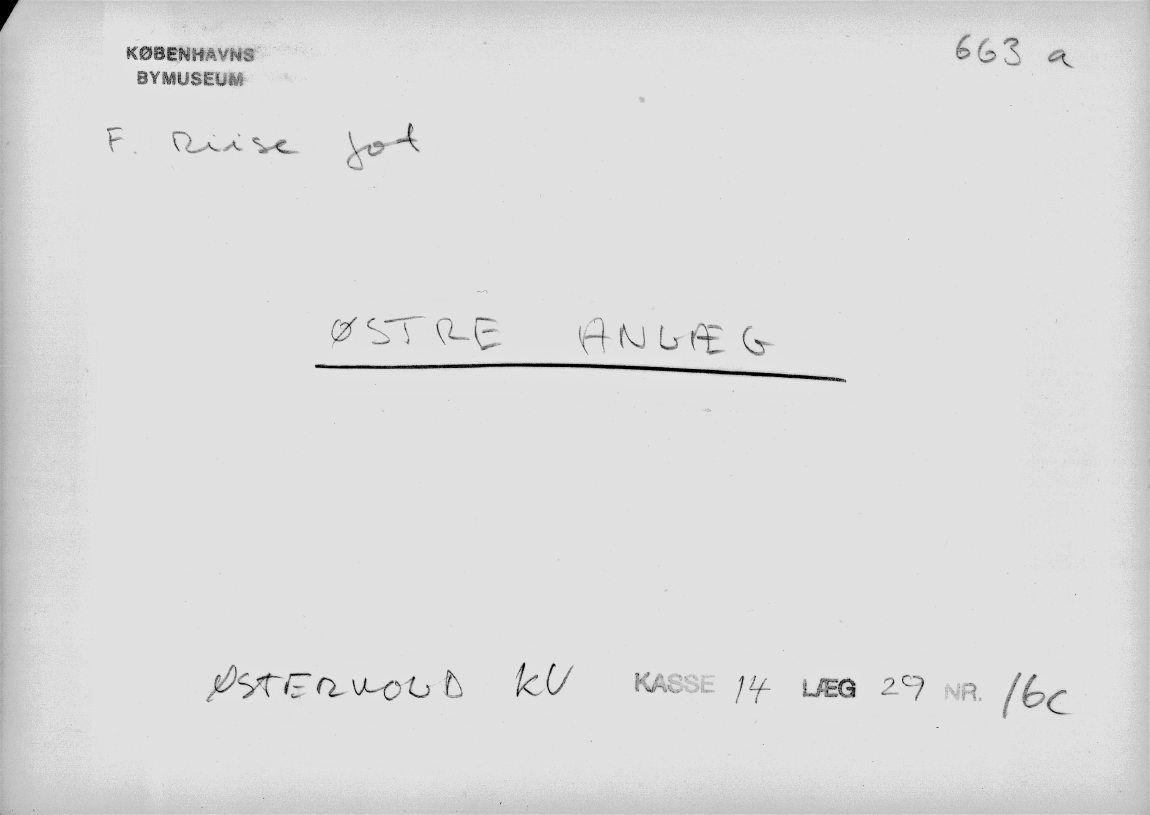 KØBENHAVNS
BYMUSEUM
663 a
F. Riise fot
ØSTRE ANLÆG
ØSTERVOLD KV KASSE 14 LÆG 29 NR. 16c